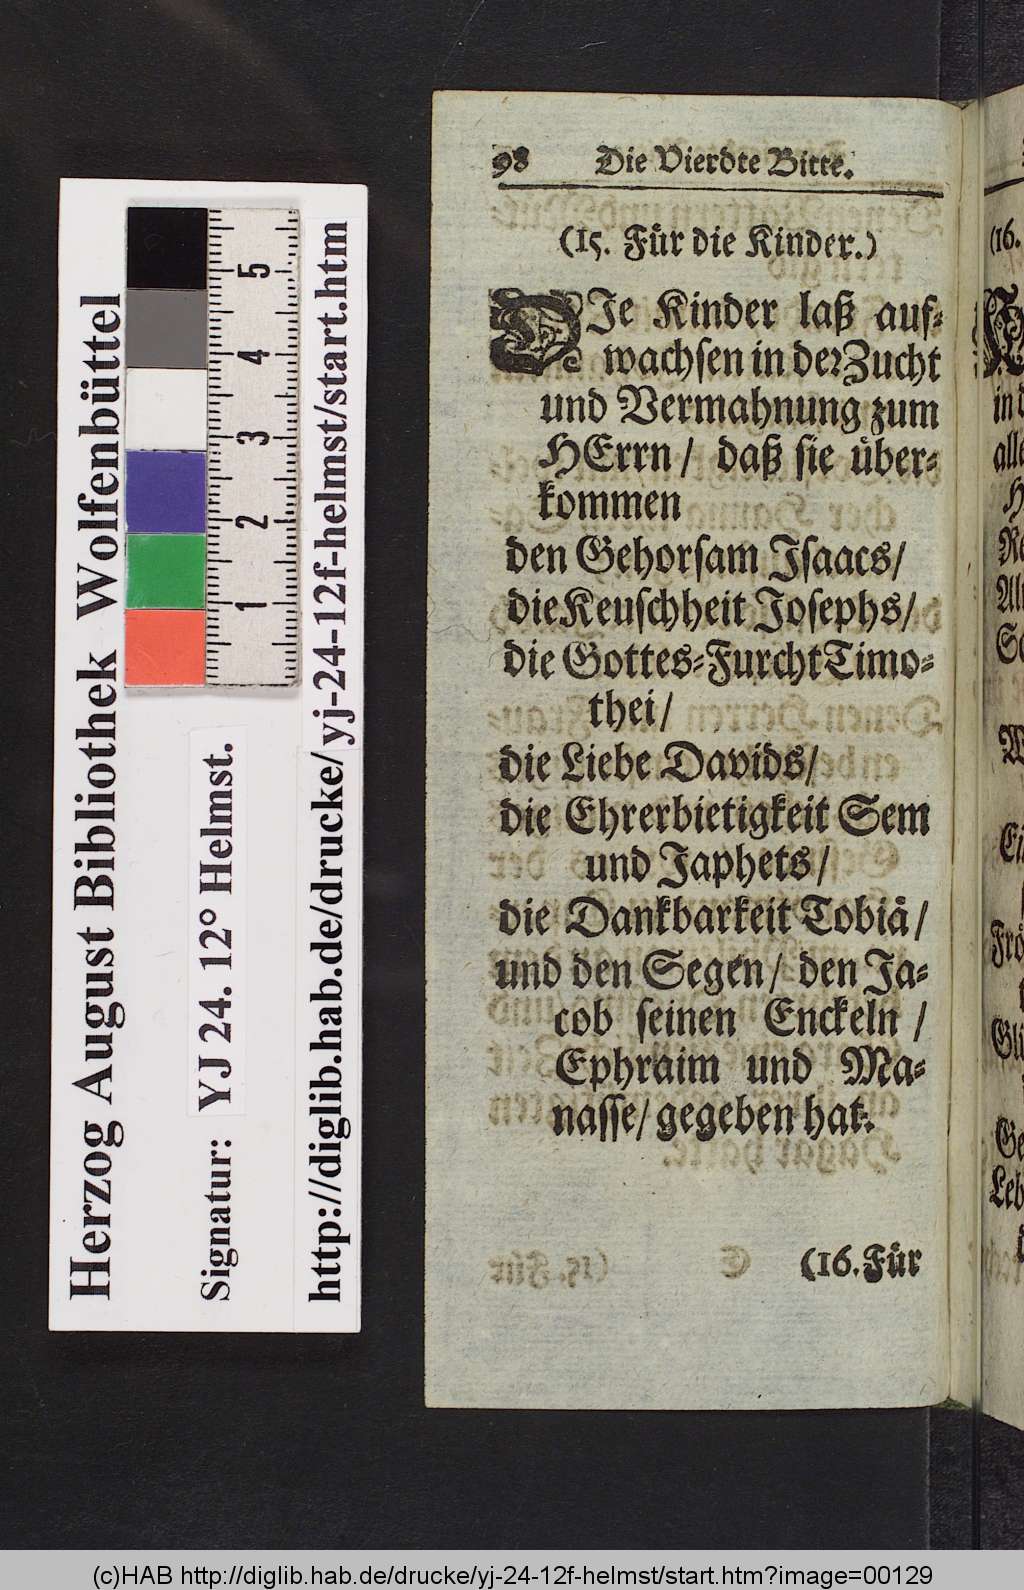 Herzog August Bibliothek Wolfenbüttel
Signatur: YJ 24. 12° Helmst.
http://diglib.hab.de/drucke/yj-24-12f-helmst/start.htm
5
4
3
2
1
98 Die Vierdte Bitte.
(15. Für die Kinder.)
DIe Kinder laß auf-
wachsen in der Zucht
und Vermahnung zum
HErrn / daß sie über-
kommen
den Gehorsam Isaacs/
die Keuschheit Josephs/
die Gottes-Furcht Timo-
thei/
die Liebe Davids/
die Ehrerbietigkeit Sem
und Japhets/
die Danckbarkeit Tobiä/
und den Segen/ den Ja-
cob seinen Enckeln /
Ephraim und Ma-
nasse/ gegeben hat.
(16. Für
(16.
in
alle
(c)HAB http://diglib.hab.de/drucke/yj-24-12f-helmst/start.htm?image=00129